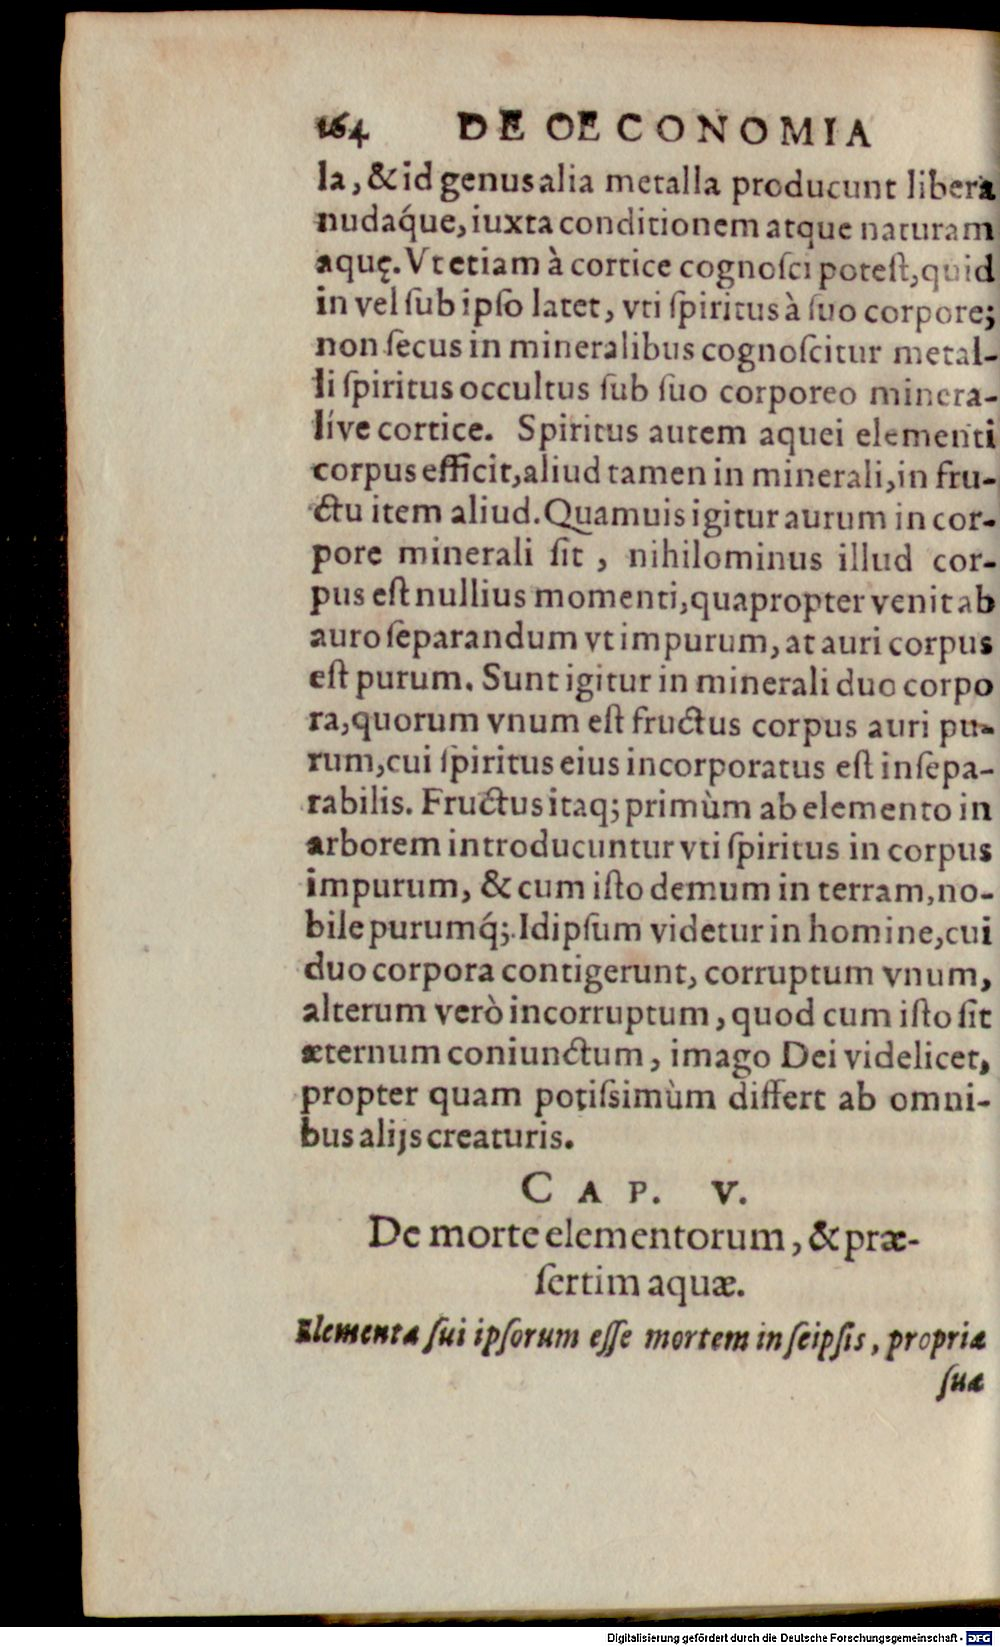 164 DE OECONOMIA
la, & id genus alia metalla producunt libera
nudaq́ue, iuxta conditionem atque naturam
aquę. Vt etiam à cortice cognoſci poteſt, quid
in vel ſub ipſo latet, vti ſpiritus à ſuo corpore;
non ſecus in mineralibus cognoſcitur metal-
li ſpiritus occultus ſub ſuo corporeo minera-
líve cortice. Spiritus autem aquei elementi
corpus efficit, aliud tamen in minerali, in fru-
ctu item aliud. Quamuis igitur aurum in cor-
pore minerali ſit, nihilominus illud cor-
pus eſt nullius momenti, quapropter venit ab
auro ſeparandum vt impurum, at auri corpus
eſt purum. Sunt igitur in minerali duo corpo
ra, quorum vnum eſt fructus corpus auri pu-
rum, cui ſpiritus eius incorporatus eſt inſepa-
rabilis. Fructus itaq; primùm ab elemento in
arborem introducuntur vti ſpiritus in corpus
impurum, & cum iſto demum in terram, no-
bile purumq́;. Idipſum videtur in homine, cui
duo corpora contigerunt, corruptum vnum,
alterum verò incorruptum, quod cum iſto ſit
æternum coniunctum, imago Dei videlicet,
propter quam potiſsimùm differt ab omni-
bus alijs creaturis.
CAP. V.
De morte elementorum, & præ-
ſertim aquæ.
Elementa ſui ipſorum eſſe mortem in ſeipſis, propria
ſua
Digitalisierung gefördert durch die Deutsche Forschungsgemeinschaft - DFG